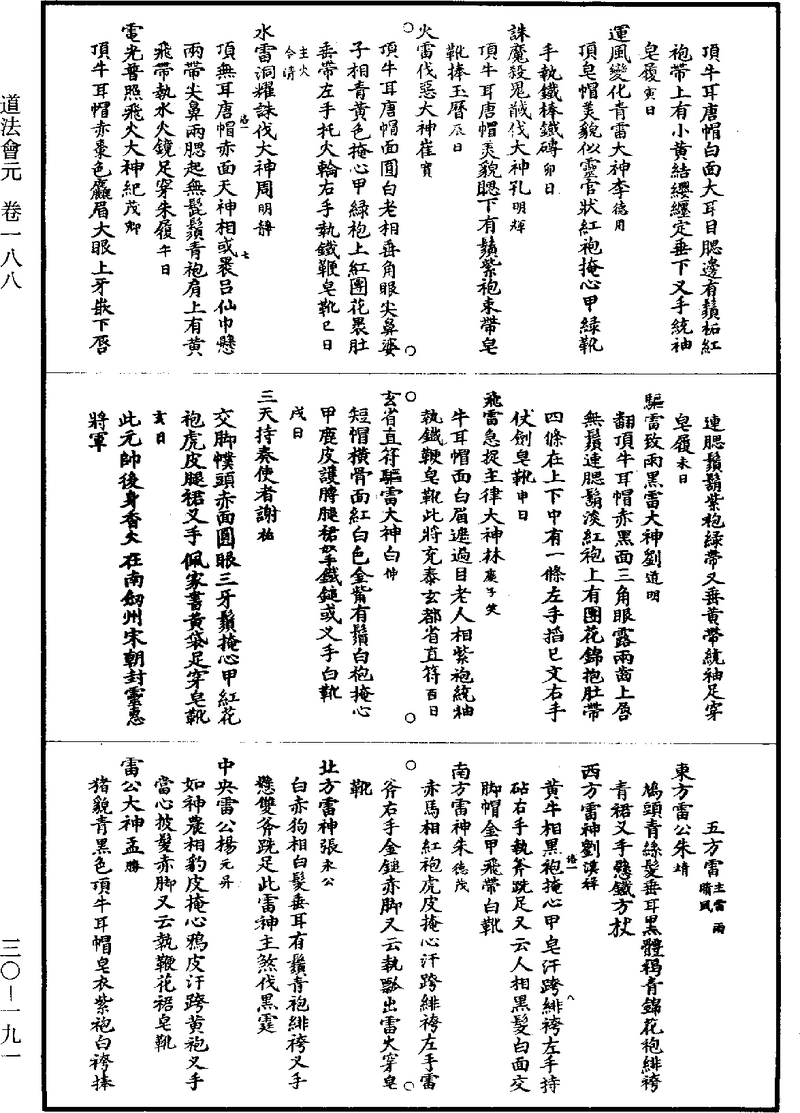 道法會元 卷一八八
三〇—一九一
頂牛耳唐帽白面大耳目腮邊有鬚柘紅
袍帶上有小黃結纓纏定垂下叉手統袖
皂履寅日
運風變化青雷大神李德用
頂皂帽美貌似靈官狀紅袍掩心甲綠靴
手執鐵棒鐵磚卯日
誅魔殺鬼馘伐大神孔明輝
頂牛耳唐帽美貌腮下有鬚紫袍束帶皂
靴捧玉曆辰日
火雷伐惡大神崔寶
頂牛耳唐帽面圓白老相垂角眼尖鼻婆
子相青黃色掩心甲綠袍上紅團花裹肚
垂帶左手托火輪右手執鐵鞭皂靴巳日
主火令清
水雷洞耀誅伐大神周明靜
頂無耳唐帽赤面天神相或裹呂仙巾懸
兩帶尖鼻兩腮起無髭鬚青袍肩上有黃
飛帶執水火鏡足穿朱履午日
電光普照飛火大神紀茂卿
頂牛耳帽赤棗色麤眉大眼上牙嵌下唇
連腮鬚鬍紫袍綠帶又垂黃帶統袖足穿
皂履未日
驅雷致雨黑雷大神劉道明
翻頂牛耳帽赤黑面三角眼露兩齒上唇
無鬚連腮鬍淡紅袍上有團花錦抱肚帶
四條在上下中有一條左手搯巳文右手
仗劍皂靴申日
飛雷急捉主律大神林庚子失
牛耳帽面白眉遮過目老人相紫袍統袖
執鐵鞭皂靴此將充泰玄都省直符酉日
玄省直符驅雷大神白伸
短帽橫骨面紅白色金觜有鬚白袍掩心
甲鹿皮護膊腿裙拏鐵鎚或叉手白靴
戌日
三天持奏使者謝祐
交脚幞頭赤面圓眼三牙鬚掩心甲紅花
袍虎皮腿裙叉手佩家書黃袋足穿皂靴
亥日
此元帥後身香火在南劒州宋朝封靈惠
將軍
五方雷主雷雨晴風
東方雷公朱靖
鳩頭青絲髮垂耳黑體褐青錦花袍緋袴
青裙叉手懸鐵方杖
西方雷神劉漢祥
黃牛相黑袍掩心甲皂汗跨緋袴左手持
砧右手執斧跣足又云人相黑髮白面交
脚帽金甲飛帶白靴
南方雷神朱德茂
赤馬相紅袍虎皮掩心汗跨緋袴左手雷
斧右手金鎚赤脚又云執瓢出雷火穿皂
靴
北方雷神張永公
白赤狗相白髮垂耳有鬚青袍緋袴叉手
懸雙斧跣足此雷神主煞伐黑霆
中央雷公楊元昇
如神農相豹皮掩心鴉皮汗跨黃袍叉手
當心披髮赤脚又云執鞭花裙皂靴
雷公大神孟勝
猪貌青黑色頂牛耳帽皂衣紫袍白袴捧